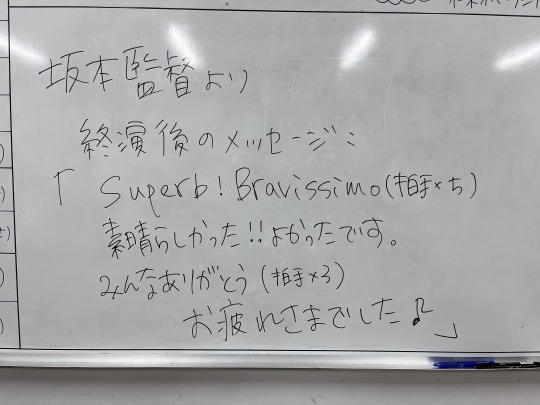 坂本監督より
終演後のメッセージ：
「 Superb! Bravissimo (拍手×5)
素晴らしかった!!よかったです。
みんなありがとう (拍手×3)
お疲れさまでした♪」